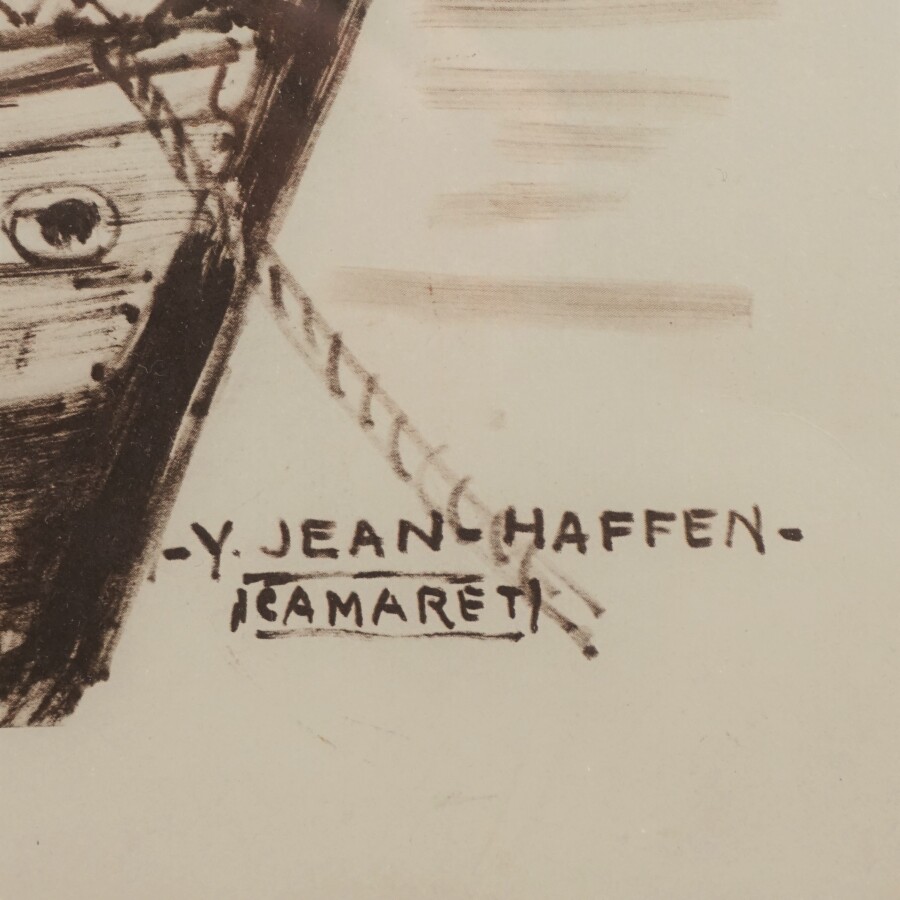 -Y. JEAN-HAFFEN-
CAMARET